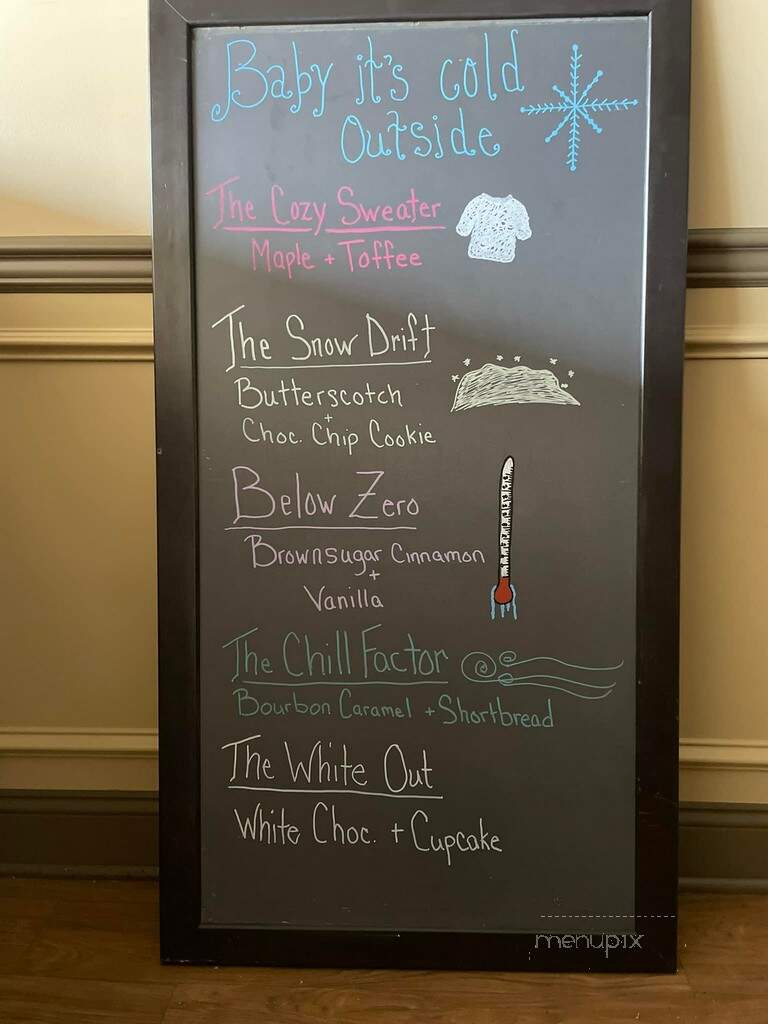 Baby it's cold
Outside
The Cozy Sweater
Maple + Toffee
The Snow Drift
Butterscotch
+
Choc. Chip Cookie
Below Zero
Brownsugar Cinnamon
+
Vanilla
The Chill Factor
Bourbon Caramel + Shortbread
The White Out
White Choc. + Cupcake
menupix